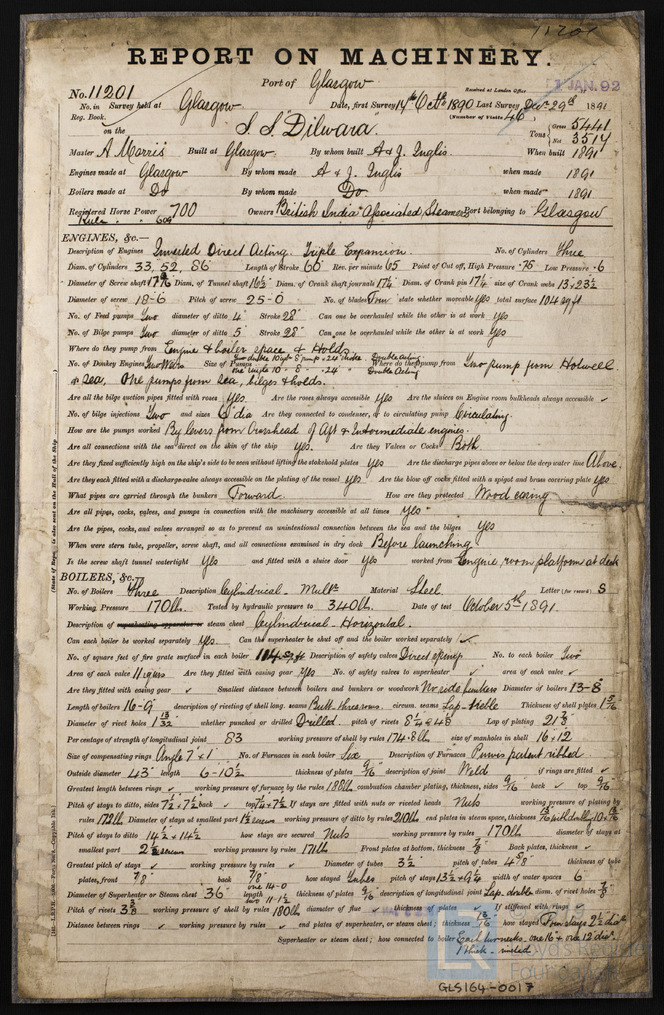 REPORT ON MACHINERY.
No. 11201 Port of Glasgow Received at London Office 1 JAN. 92
No. in Survey held at Glasgow Date, first Survey 14th Oct 1890 Last Survey Decr 29th 1891
Reg. Book. (Number of Visits 46)
on the S.S. "Dilwara" Tons Gross 5441 Net 3514
Master A Morris Built at Glasgow. By whom built A & J. Inglis. When built 1891
Engines made at Glasgow By whom made A & J. Inglis when made 1891
Boilers made at Do By whom made Do. when made 1891
Registered Horse Power 700 Owners British India Associated Steamers Port belonging to Glasgow
Rule 609
ENGINES, &c.—
Description of Engines Inverted Direct Acting. Triple Expansion. No. of Cylinders three
Diam. of Cylinders 33, 52, 86 Length of Stroke 60 Rev. per minute 65 Point of Cut off, High Pressure .75 Low Pressure .6
Diameter of Screw shaft Diam. of Tunnel shaft 16½ Diam. of Crank shaft journals 17¼ Diam. of Crank pin 17¼ size of Crank webs 13 × 23½
Diameter of screw 18-6 Pitch of screw 25-0 No. of blades Four state whether moveable yes total surface 104 sq ft
No. of Feed pumps Two diameter of ditto 4 Stroke 28" Can one be overhauled while the other is at work yes
No. of Bilge pumps Two diameter of ditto 5 Stroke 28" Can one be overhauled while the other is at work yes
Where do they pump from Engine & boiler space & Holds.
No. of Donkey Engines Size of Pumps Double Acting Where do they pump from Two pump from Hotwell
& sea, One pumps from sea, bilges & holds.
Are all the bilge suction pipes fitted with roses yes Are the roses always accessible yes Are the sluices on Engine room bulkheads always accessible ✓
No. of bilge injections Two and sizes 8" dia Are they connected to condenser, or to circulating pump Circulating.
How are the pumps worked By levers from Crosshead of Aft & Intermediate engines.
Are all connections with the sea direct on the skin of the ship yes. Are they Valves or Cocks Both.
Are they fixed sufficiently high on the ship's side to be seen without lifting the stokehold plates yes Are the discharge pipes above or below the deep water line Above.
Are they each fitted with a discharge valve always accessible on the plating of the vessel yes Are the blow off cocks fitted with a spigot and brass covering plate yes
What pipes are carried through the bunkers Forward. How are they protected Wood casing
Are all pipes, cocks, valves, and pumps in connection with the machinery accessible at all times yes
Are the pipes, cocks, and valves arranged so as to prevent an unintentional connection between the sea and the bilges yes
When were stern tube, propeller, screw shaft, and all connections examined in dry dock Before launching
Is the screw shaft tunnel watertight yes and fitted with a sluice door yes worked from Engine room platform at deck
BOILERS, &c.—
No. of Boilers three Description Cylindrical - Multr Material Steel Letter (for record) S
Working Pressure 170 lb. Tested by hydraulic pressure to 340 lb. Date of test October 5th 1891.
Description of superheating apparatus or steam chest Cylindrical - Horizontal.
Can each boiler be worked separately yes Can the superheater be shut off and the boiler worked separately ✓
No. of square feet of fire grate surface in each boiler 104 sq ft Description of safety valves Direct spring No. to each boiler Two
Area of each valve Are they fitted with easing gear yes No. of safety valves to superheater ✓ area of each valve ✓
Are they fitted with easing gear ✓ Smallest distance between boilers and bunkers or woodwork No side bunkers Diameter of boilers 13-8
Length of boilers 16-9 description of riveting of shell long. seams Butt. circum. seams Lap. double Thickness of shell plates 15/16
Diameter of rivet holes 1 13/32 whether punched or drilled Drilled. pitch of rivets Lap of plating 21 ⅞
Per centage of strength of longitudinal joint 83 working pressure of shell by rules 174.8 lb. size of manholes in shell 16 × 12
Size of compensating rings Angle 7" × 1" No. of Furnaces in each boiler Six Description of Furnaces Purves patent ribbed
Outside diameter 43" length 6-10½ thickness of plates 9/16 description of joint Weld if rings are fitted ✓
Greatest length between rings ✓ working pressure of furnace by the rules 188 lb combustion chamber plating, thickness, sides 9/16 back ✓ top 9/16
Pitch of stays to ditto, sides 7½ × 7½ back ✓ top If stays are fitted with nuts or riveted heads Nuts working pressure of plating by
rules 172 lb Diameter of stays at smallest part 1½ screws working pressure of ditto by rules 210 lb end plates in steam space, thickness
Pitch of stays to ditto 14½ × 14½ how stays are secured Nuts working pressure by rules 170 lb diameter of stays at
smallest part 2½ screws working pressure by rules 171 lb Front plates at bottom, thickness ⅞ Back plates, thickness ✓
Greatest pitch of stays ✓ working pressure by rules ✓ Diameter of tubes 3½ pitch of tubes 4⅝ thickness of tube
plates, front ⅞ back ⅞ how stayed Tubes pitch of stays 13½ × 9¼ width of water spaces 6
Diameter of Superheater or Steam chest 36" length one 14-0 two 11-1½ thickness of plates 9/16 description of longitudinal joint Lap. double diam. of rivet holes ⅞
Pitch of rivets 3⅜ working pressure of shell by rules 180 lb diameter of flue ✓ thickness of plates ✓ If stiffened with rings ✓
Distance between rings ✓ working pressure by rules ✓ end plates of superheater, or steam chest; thickness 13/16 how stayed Four stays 2½ diar
Superheater or steam chest; how connected to boiler Each two necks - one 16" & one 12" dia.
thick - riveted
Lloyd's Register Foundation
GLS164-0017